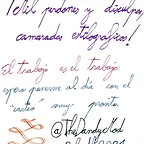 ¡Mil perdones y disculpas,
camaradas estilográficos!
El trabajo es el trabajo.
espero ponerme al día con el
"carteo" muy pronto.
@TheDandyMod